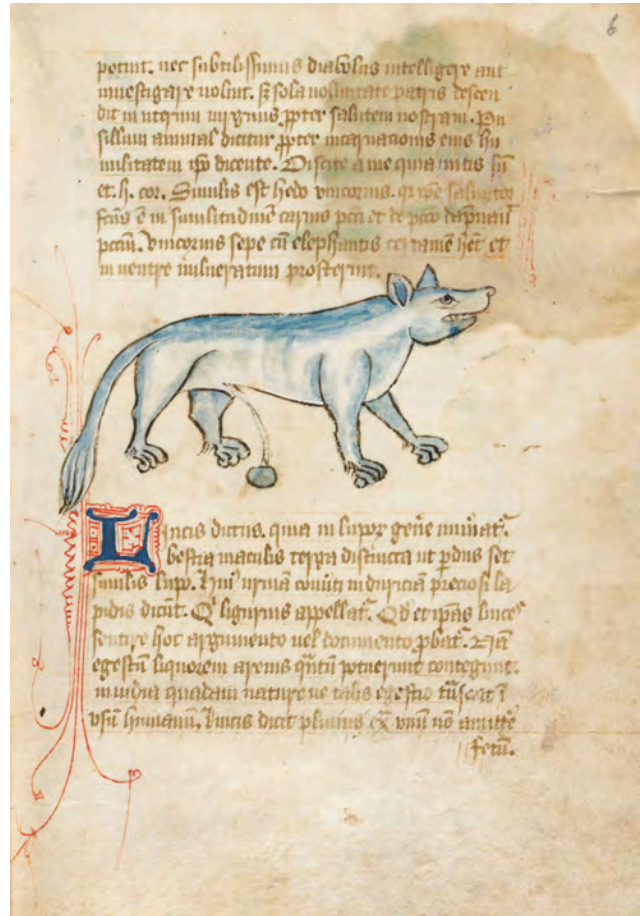 6
potuit. nec subtilissimus diabolus intelligere aut
inuestigare uoluit. s̄ sola uoluntate patris descen
dit in uterum uirginis ꝓpter salutem nostram. Pu
sillum animal dicitur ꝓpter incarnacionis eius hu
militatem ip̄o dicente. Discite a me quia mitis sū
et. h. cor. Similis est hedo vnicornis. qr saluator
fc̄us ē in similitudinē carnis pcc̄i et de pcc̄o dāpnauit
pcc̄m. Vnicornis sepe cū elephantis certamē het et
in uentre uulneratum prosternit.
Lincis dictus. quia in lupoꝝ genēe nūiat᷑.
bestia maculis terga distincta ut pdus set
similis lupo. Huius urinā conuti in duriciā preciosi la
pidis dicūt. Qi ligurius appellat᷑. Qd et ip̄as linces
sentire hoc argumento uel documento ꝓbat᷑. Nā
egestū liquorem arenis qntū potuerint contegunt.
inuidia quadam nature ne talis egestio tn̄seat ī
usū humanū. Lincis dicit plinius ex vnū nō amitte
fetū.